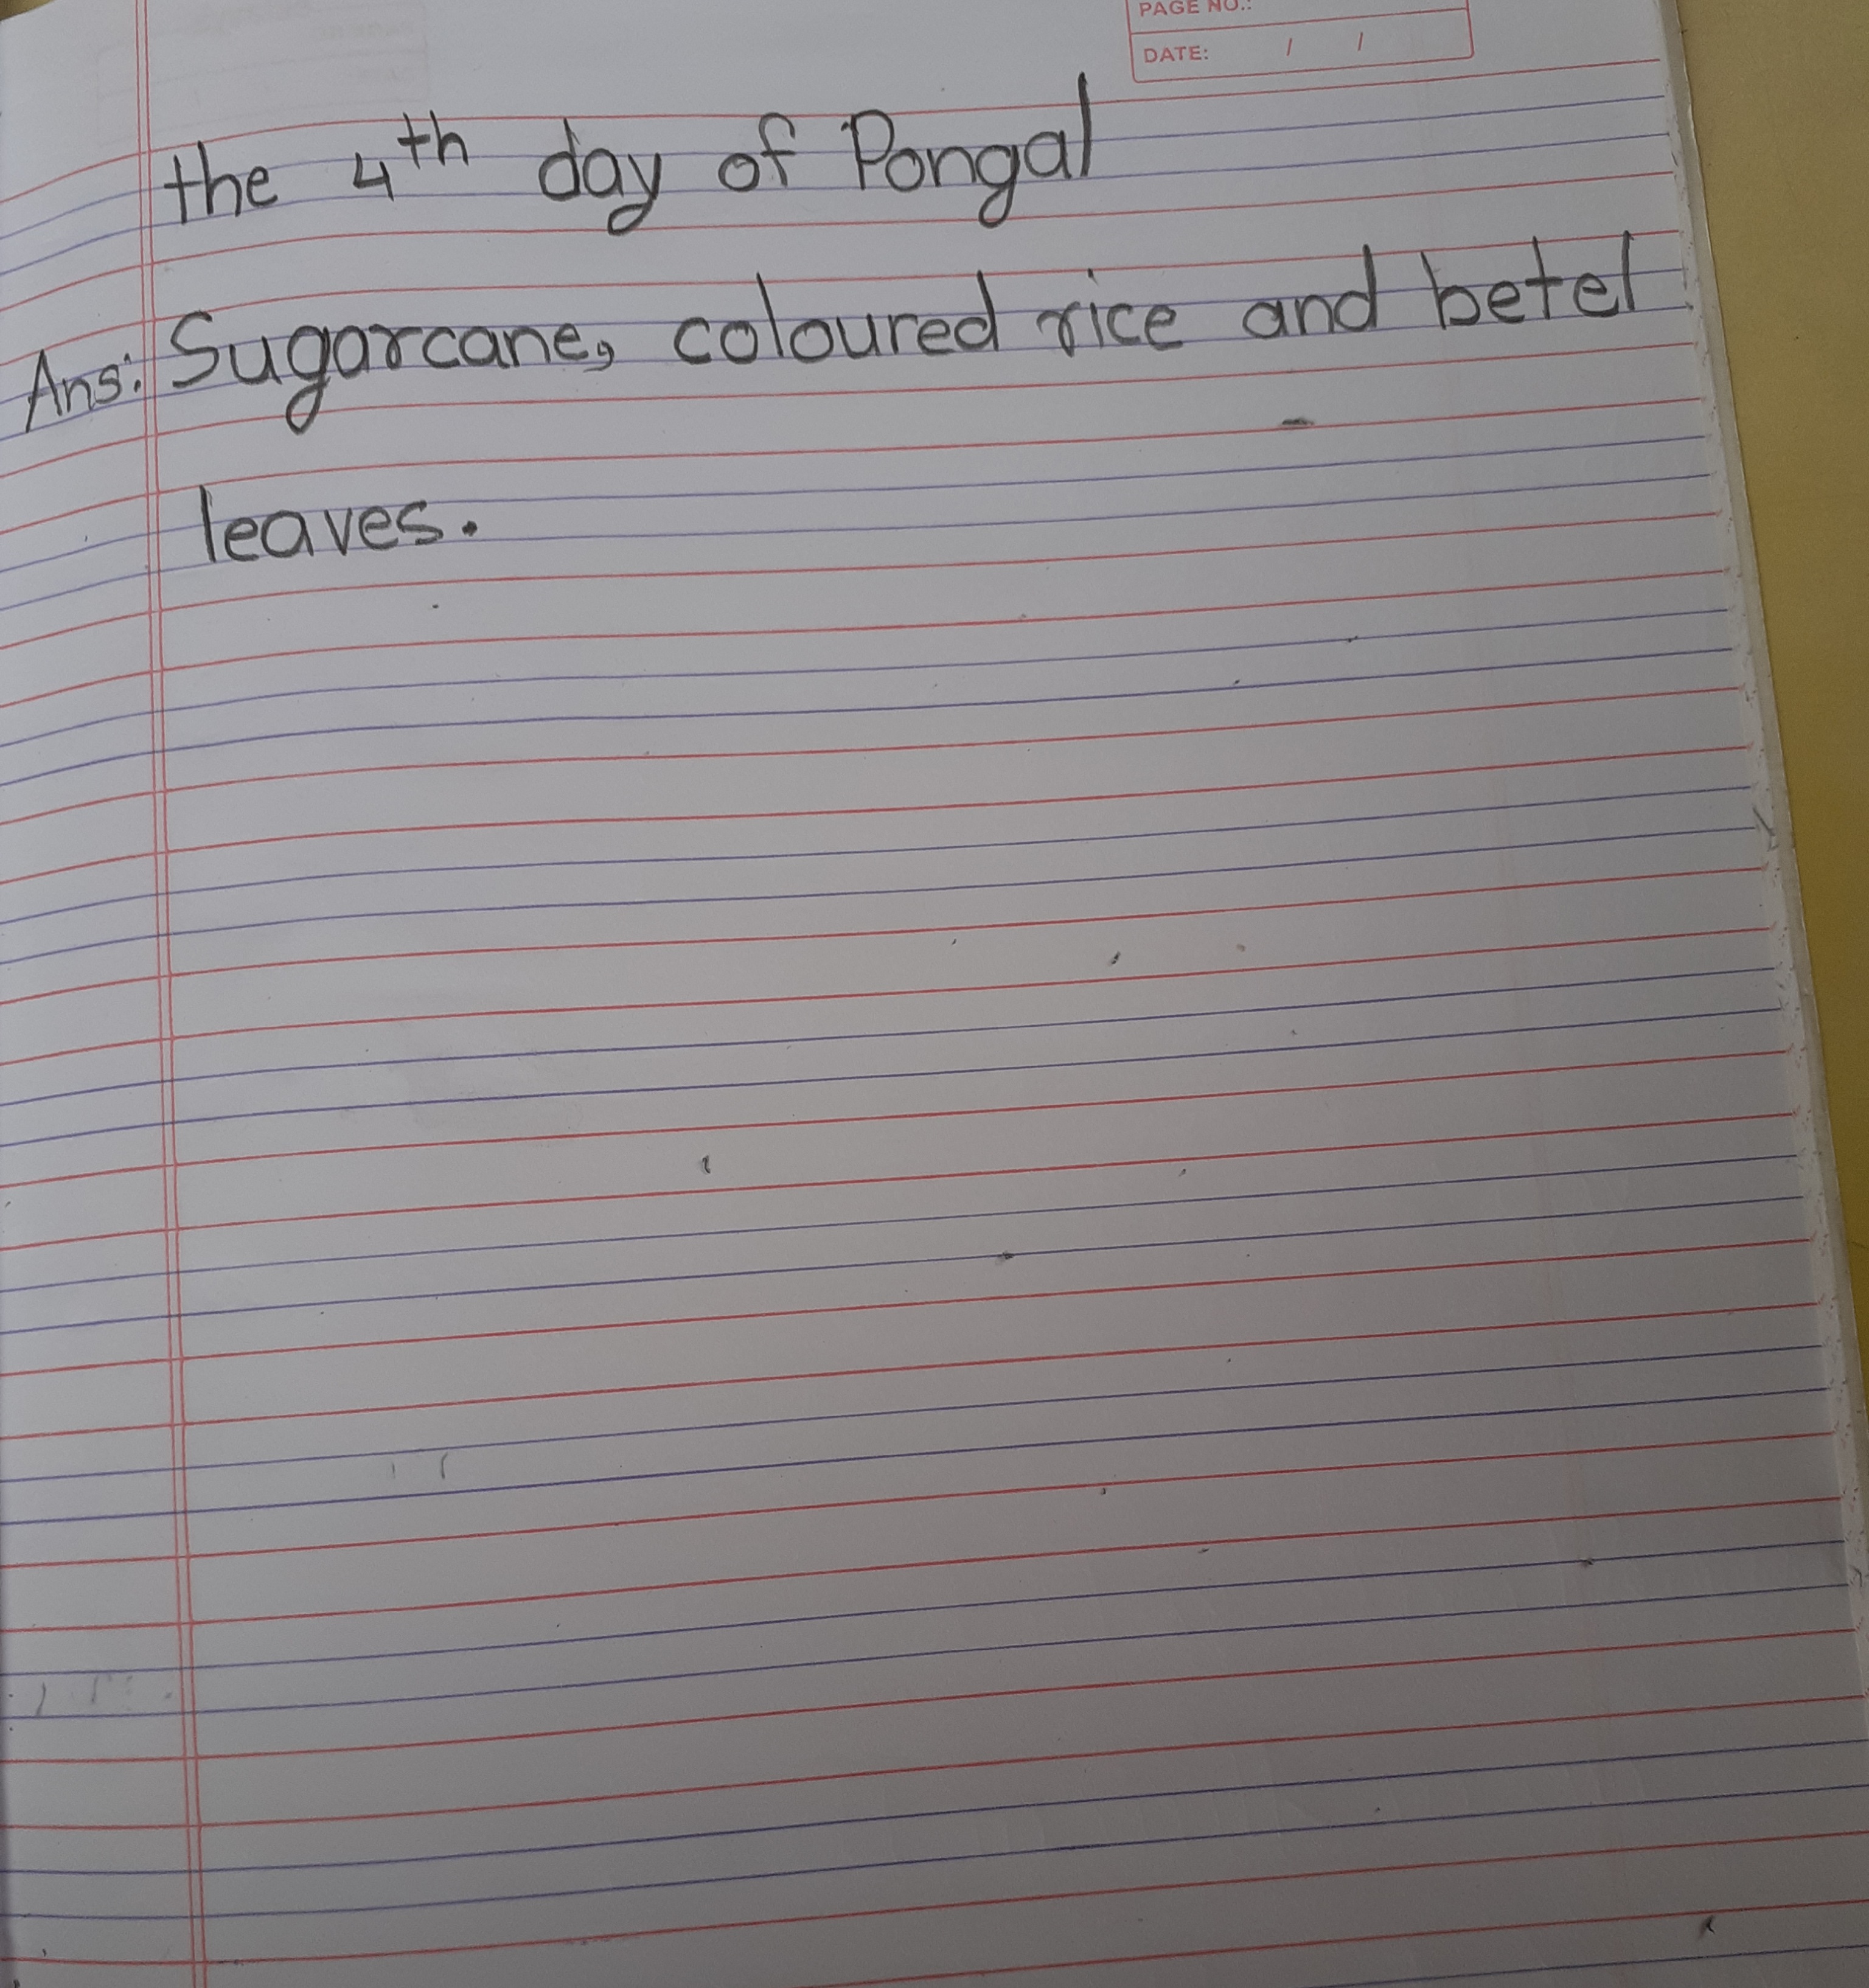 PAGE NO.:
DATE: / /
the 4th day of Pongal
Ans: Sugarcane, coloured rice and betel
leaves.